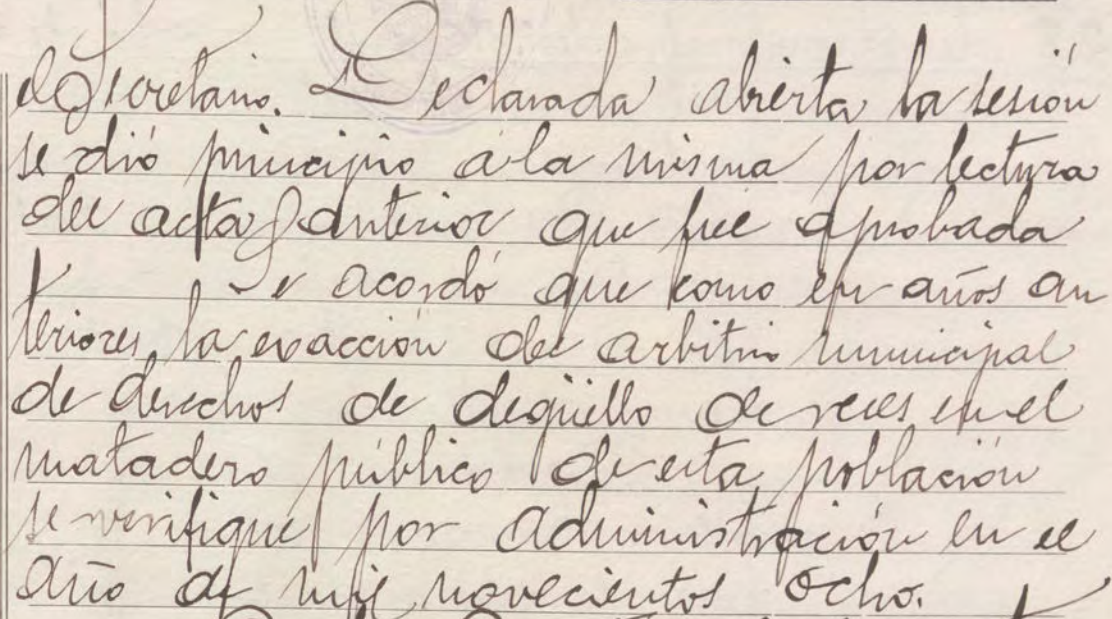 el Secretario. Declarada abierta la sesión
se dió principio á la misma por lectura
del acta anterior que fue aprobada
Se acordó que como en años an
teriores, la exacción del arbitrio municipal
de derechos de degüello de reses en el
matadero público de esta población
se verifique por administración en el
año de mil novecientos ocho.